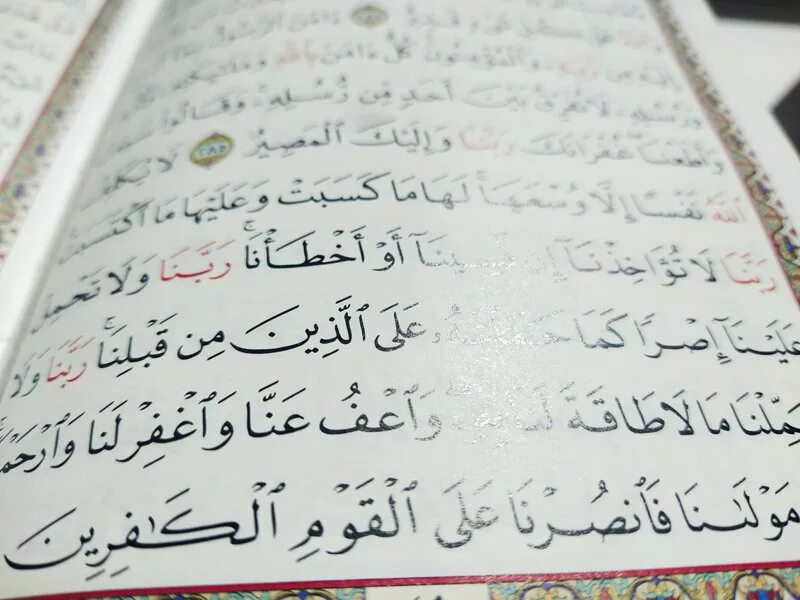 كل شيء قدير ۝ ءامن الرسول
من ربه والمؤمنون كل ءامن بالله وملئكته
ورسله لا نفرق بين أحد من رسله وقالوا
وأطعنا غفرانك ربنا وإليك المصير ۝٢٨٥ لا يكلف
ٱللَّهُ نَفْسًا إِلَّا وُسْعَهَا لَهَا مَا كَسَبَتْ وَعَلَيْهَا مَا ٱكْتَسَبَتْ
رَبَّنَا لَا تُؤَاخِذْنَآ إِن نَّسِينَآ أَوْ أَخْطَأْنَا ۚ رَبَّنَا وَلَا تَحْمِلْ
عَلَيْنَآ إِصْرًا كَمَا حَمَلْتَهُۥ عَلَى ٱلَّذِينَ مِن قَبْلِنَا ۚ رَبَّنَا وَلَا
تُحَمِّلْنَا مَا لَا طَاقَةَ لَنَا بِهِۦ وَٱعْفُ عَنَّا وَٱغْفِرْ لَنَا وَٱرْحَمْنَآ
مَوْلَىٰنَا فَٱنصُرْنَا عَلَى ٱلْقَوْمِ ٱلْكَـٰفِرِينَ